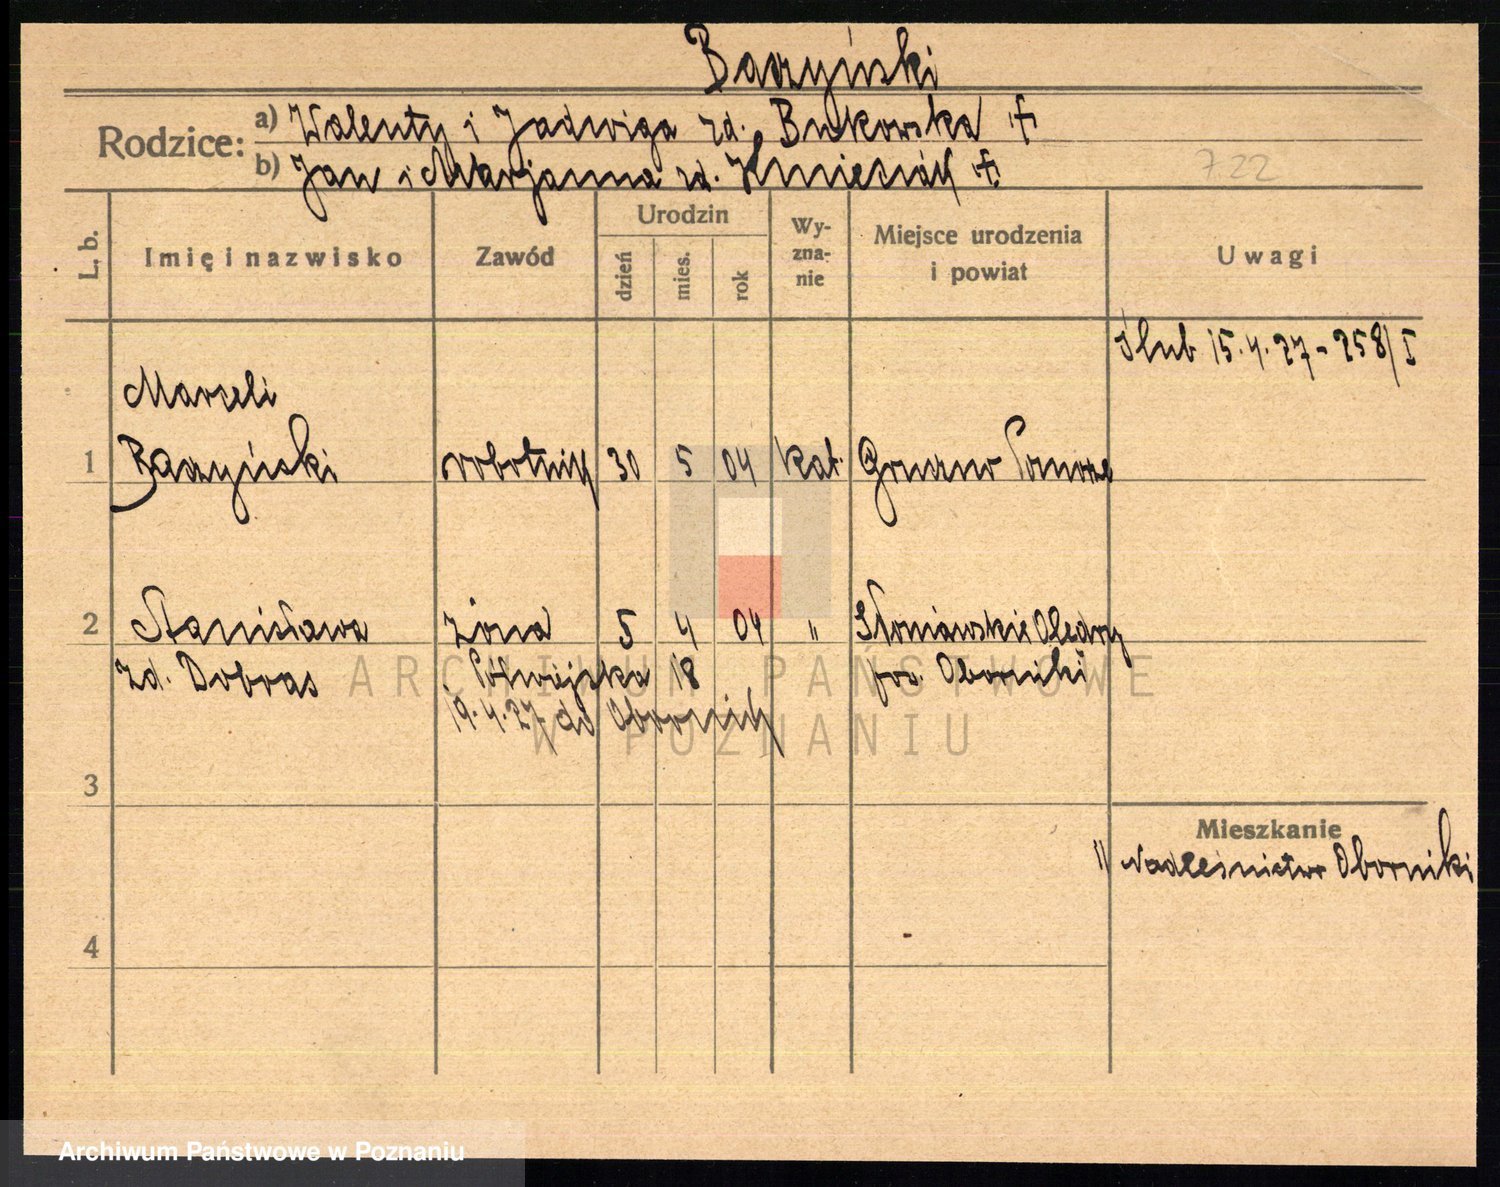 Baczyński
Rodzice: a) Walenty i Jadwiga zd. Bukowska †
b) Jan i Marjanna zd. Kmieciak †
722
L. b.
Imię i nazwisko
Zawód
Urodzin
dzień
mies.
rok
Wy-
zna-
nie
Miejsce urodzenia
i powiat
Uwagi
Ślub 15.4.27 - 258/I
Marceli
1 Baczyński robotnik 30 5 04 kat. Pomorze
2 Stanisława żona 5 4 04 " Słoniawskie Olędry
zd. Dobras Półwiejska 18 pow. Oborniki
19.4.27 do Obornik
3
Mieszkanie
" Nadleśnictwo Oborniki
4
ARCHIWUM PAŃSTWOWE
W POZNANIU
Archiwum Państwowe w Poznaniu